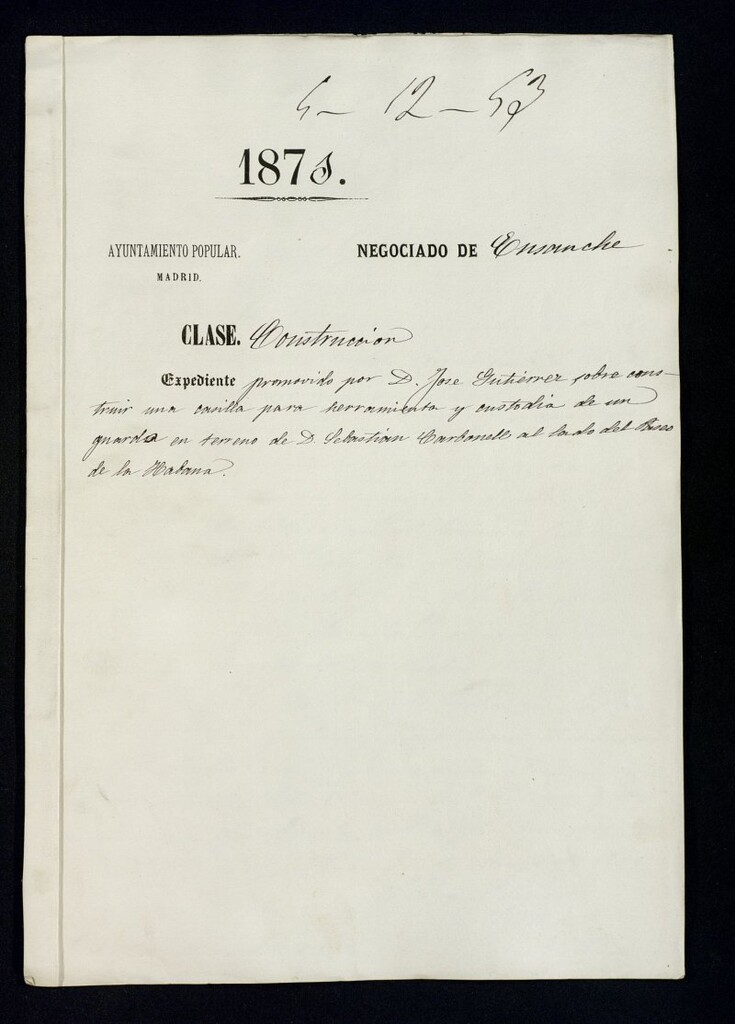 5-12-53
1873.
AYUNTAMIENTO POPULAR. NEGOCIADO DE Ensanche
MADRID.
CLASE. Construccion
Expediente promovido por D. Jose Gutierrez sobre cons-
truir una casilla para herramienta y custodia de un
guarda en terreno de D. Sebastián Carbonell al lado del Paseo
de la Habana.